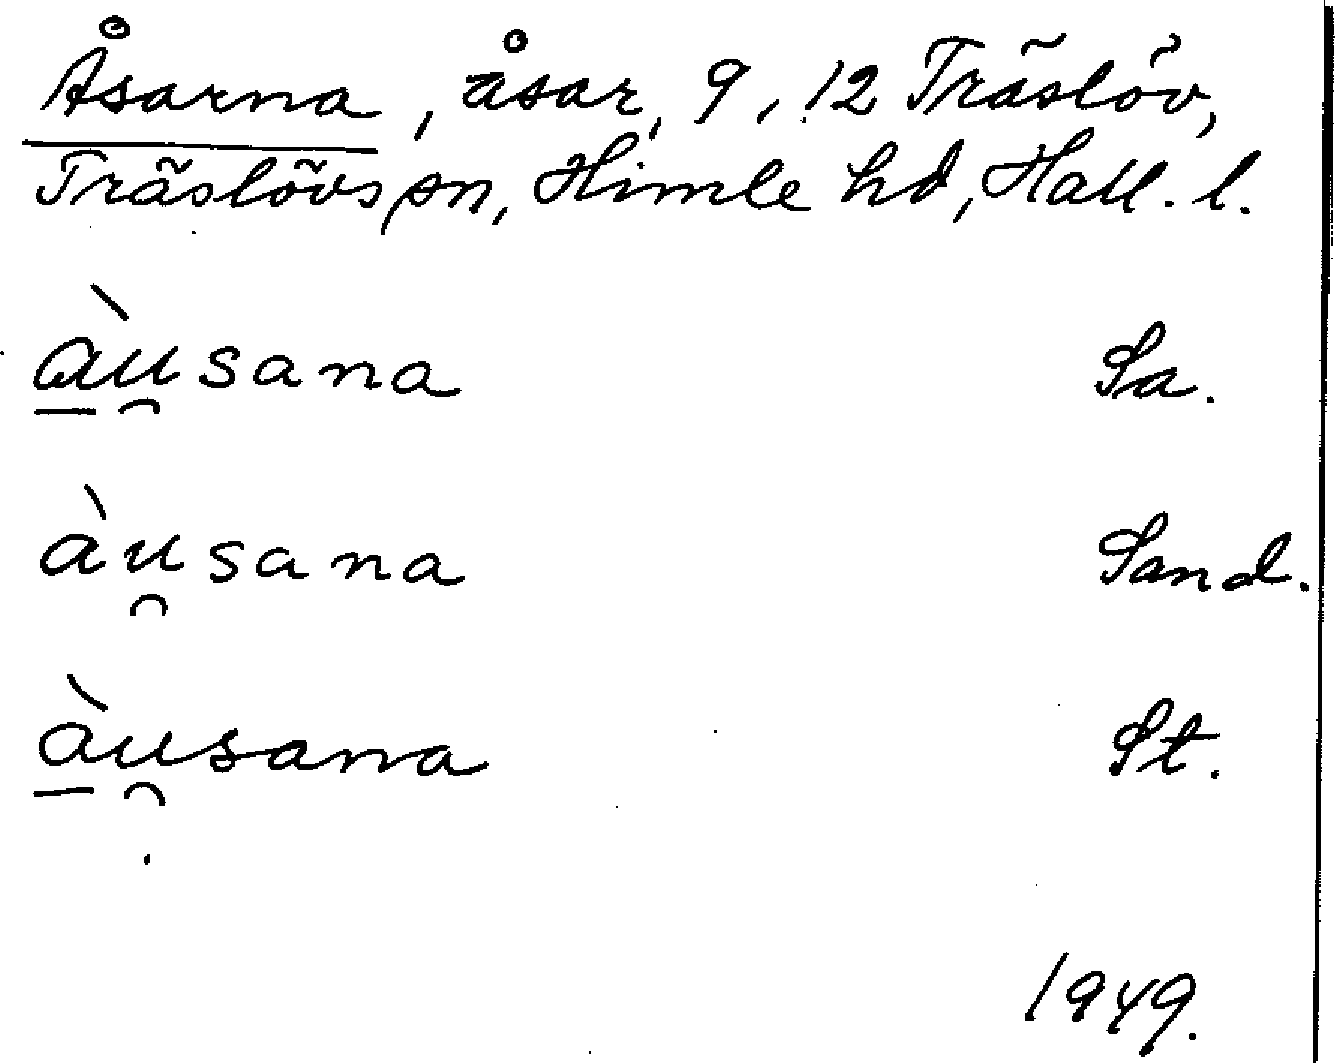 Åsarna, åsar, 9, 12 Träslöv,
Träslövs sn, Himle hd, Hall. l.
à̲u̯sana Sa.
àu̯sana Sand.
à̲u̯sana St.
1949.